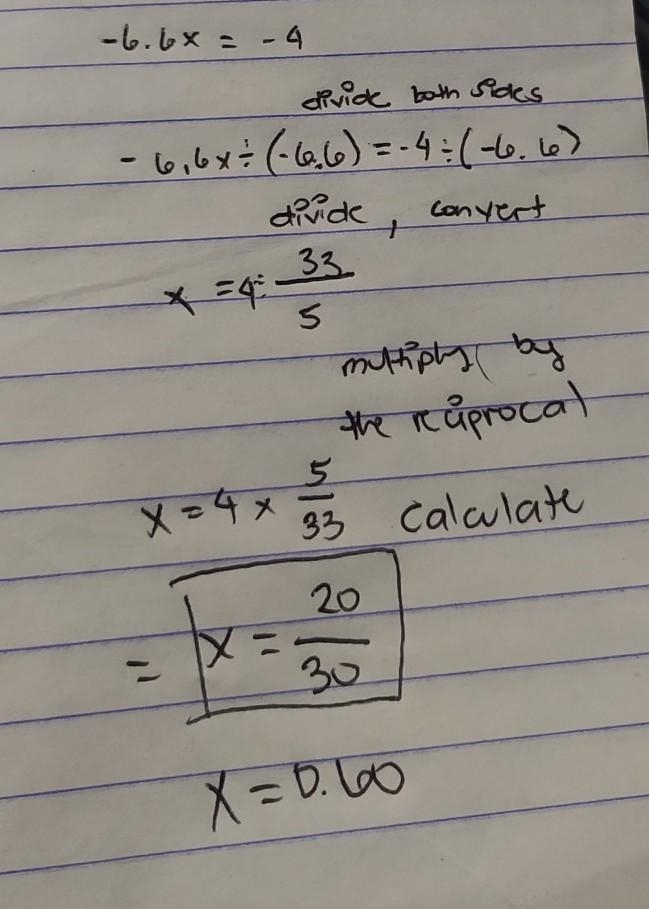 -6.6x = -4
divide both sides
-6.6x÷(-6.6) = -4÷(-6.6)
divide, convert
x = 4÷ 33/5
multiply by
the reciprocal
x = 4 × 5/33 calculate
= x = 20/30
x = 0.60